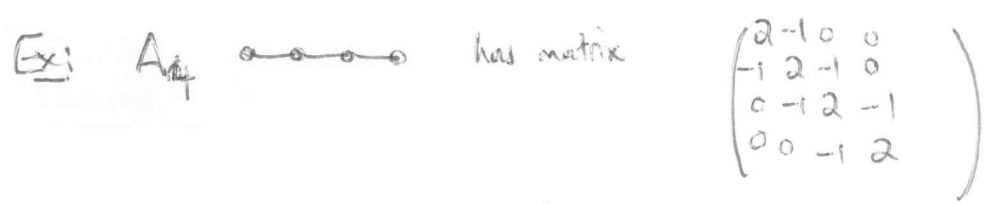 Ex: A4 has matrix
2 -1 0 0
-1 2 -1 0
0 -1 2 -1
0 0 -1 2